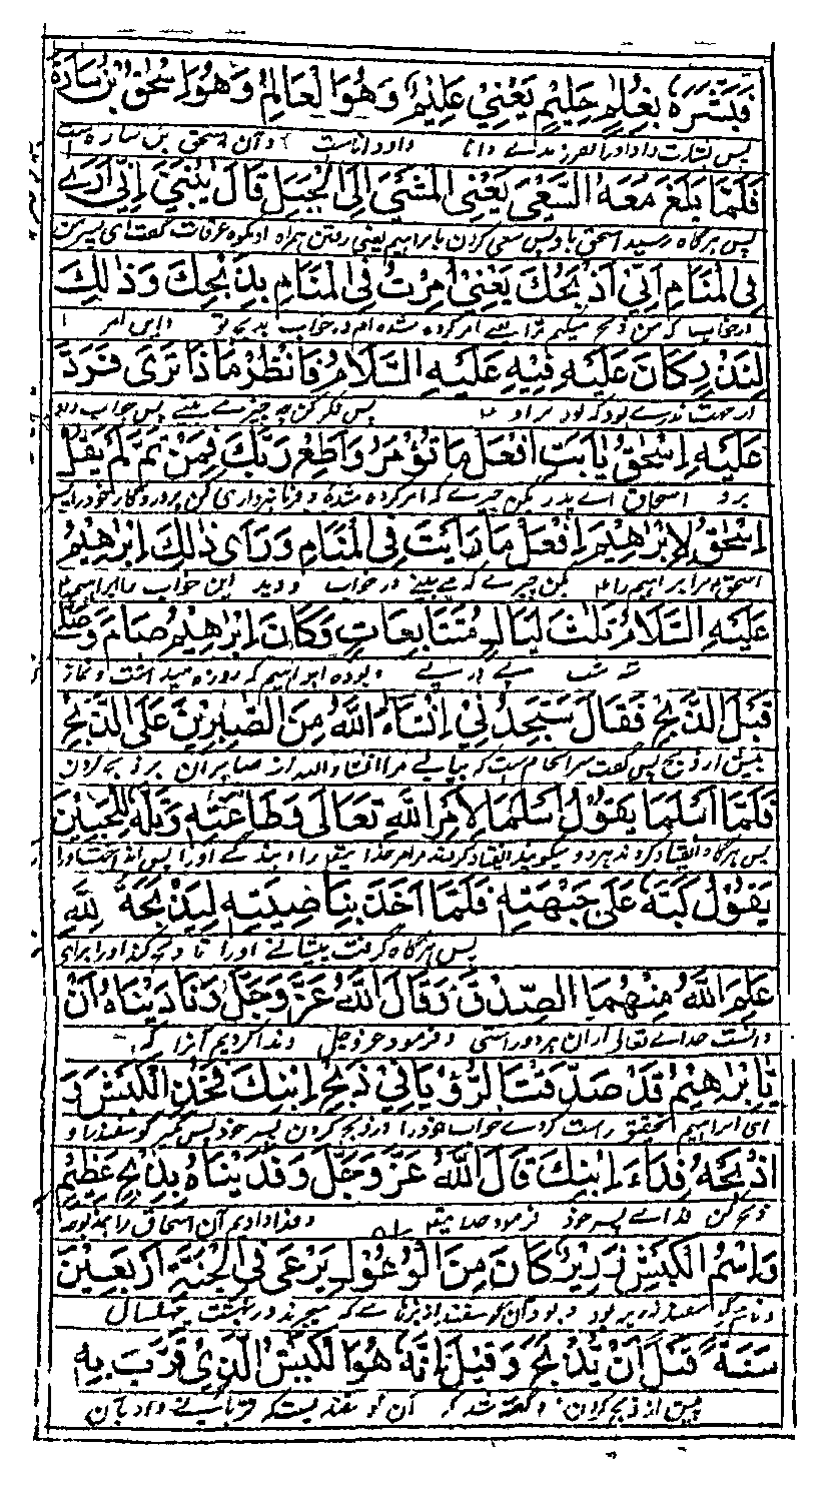 فَبَشَّرَهُ بِغُلٰمٍ حَلِيْمٍ يَعْنِيْ عَلِيْمٌ وَهُوَ الْعَالِمُ وَهُوَ اِسْحٰقُ بْنُ سَارَةَ
پس بشارت داد او را بفرزندے دانا و او داناست و آن اسحق بن ساره است
فَلَمَّا بَلَغَ مَعَهُ السَّعْيَ يَعْنِي الْمَشْيَ اِلَى الْجَبَلِ قَالَ يٰبُنَيَّ اِنِّيْ اَرٰے
پس هرگاه رسید اسحق با و پس سعی کردن با ابراهیم یعنی رفتن همراه او بکوه عرفات گفت ای پسر من
فِي الْمَنَامِ اَنِّيْ اَذْبَحُكَ يَعْنِيْ اُمِرْتُ فِي الْمَنَامِ بِذَبْحِكَ وَذٰلِكَ
در خواب که من ذبح میکنم ترا یعنے امر کرده شده ام در خواب بذبح تو و این امر
لِنَذْرٍ كَانَ عَلَيْهِ فِيْهِ عَلَيْهِ السَّلَامُ فَانْظُرْ مَاذَا تَرٰى فَرَدَّ
از جهت نذرے بود که بود بر او پس فکر کن چه چیزے بینے پس جواب داد
عَلَيْهِ اِسْحٰقُ يٰاَبَتِ افْعَلْ مَا تُؤْمَرُ وَاَطِعْ رَبَّكَ فَمِنْ ثَمَّ لَمْ يَقُلْ
برو اسحاق اے پدر بکن چیزے که امر کرده شدهٔ و فرمانبرداری کن پروردگار خود را
اِسْحٰقُ لِاِبْرٰهِيْمَ اِفْعَلْ مَا رَاَيْتَ فِي الْمَنَامِ وَرَاٰى ذٰلِكَ اِبْرٰهِيْمُ
اسحق مر ابراهیم را بکن چیزے که مے بینے در خواب و دید این خواب را ابراهیم
عَلَيْهِ السَّلَامُ ثَلٰثَ لَيَالٍ مُتَتَابِعَاتٍ وَكَانَ اِبْرٰهِيْمُ صَامَ وَصَلّٰے
سه شب پے در پے و بوده ابراهیم که روزه میداشت و نماز
قَبْلَ الذَّبْحِ فَقَالَ سَتَجِدُنِيْ اِنْشَاءَ اللّٰهُ مِنَ الصّٰبِرِيْنَ عَلَى الذَّبْحِ
پیش از ذبح پس گفت سرانجام است که بیابے مرا انشاء الله از صابران بر ذبح کردن
فَلَمَّا اَسْلَمَا يَقُوْلُ اَسْلَمَا لِاَمْرِ اللّٰهِ تَعَالٰى وَطَاعَتِهٖ وَتَلَّهٗ لِلْجَبِيْنِ
پس هرگاه انقیاد کردند هر دو میگوید انقیاد کردند مر امر خدا را و بندگے او را پس انداخت او را
يَقُوْلُ كَبَّهٗ عَلٰى جَبْهَتِهٖ فَلَمَّا اَخَذَ بِنَاصِيَتِهٖ لِيَذْبَحَهٗ لِلّٰهِ
پس هرگاه گرفت پیشانے او را تا ذبح کند او را برای
عَلِمَ اللّٰهُ مِنْهُمَا الصِّدْقَ وَقَالَ اللّٰهُ عَزَّ وَجَلَّ وَنَادَيْنَاهُ اَنْ
دانست خداے تعالی از آن هر دو راستی و فرمود عز و جل و ندا کردیم آنرا که
يَّا اِبْرٰهِيْمُ قَدْ صَدَّقْتَ الرُّؤْيَا فِيْ ذَبْحِ اِبْنِكَ فَخُذِ الْكَبْشَ وَ
ای ابراهیم بتحقیق راست کردے خواب خود را در ذبح کردن پسر خود پس بگیر گوسفند را و
اذْبَحْهُ فِدَاءَ اِبْنِكَ قَالَ اللّٰهُ عَزَّ وَجَلَّ وَفَدَيْنَاهُ بِذِبْحٍ عَظِيْمٍ
ذبح کن فداے پسر خود فرمود و فدا دادیم آن اسحاق را
وَاِسْمُ الْكَبْشِ زَرِيْرٌ كَانَ مِنَ الْوُعُوْلِ يَرْعٰى فِي الْجَنَّةِ اَرْبَعِيْنَ
و نام گوسفند زریر بود و بود آن گوسفند از بزهاے که میچرند در بهشت چهل سال
سَنَةً قَبْلَ اَنْ يُّذْبَحَ وَقِيْلَ اِنَّهٗ هُوَ الْكَبْشُ الَّذِيْ قَرَّبَ بِهٖ
پیش از ذبح کردن و گفته شد که آن گوسفندیست که قربانے داد بآن